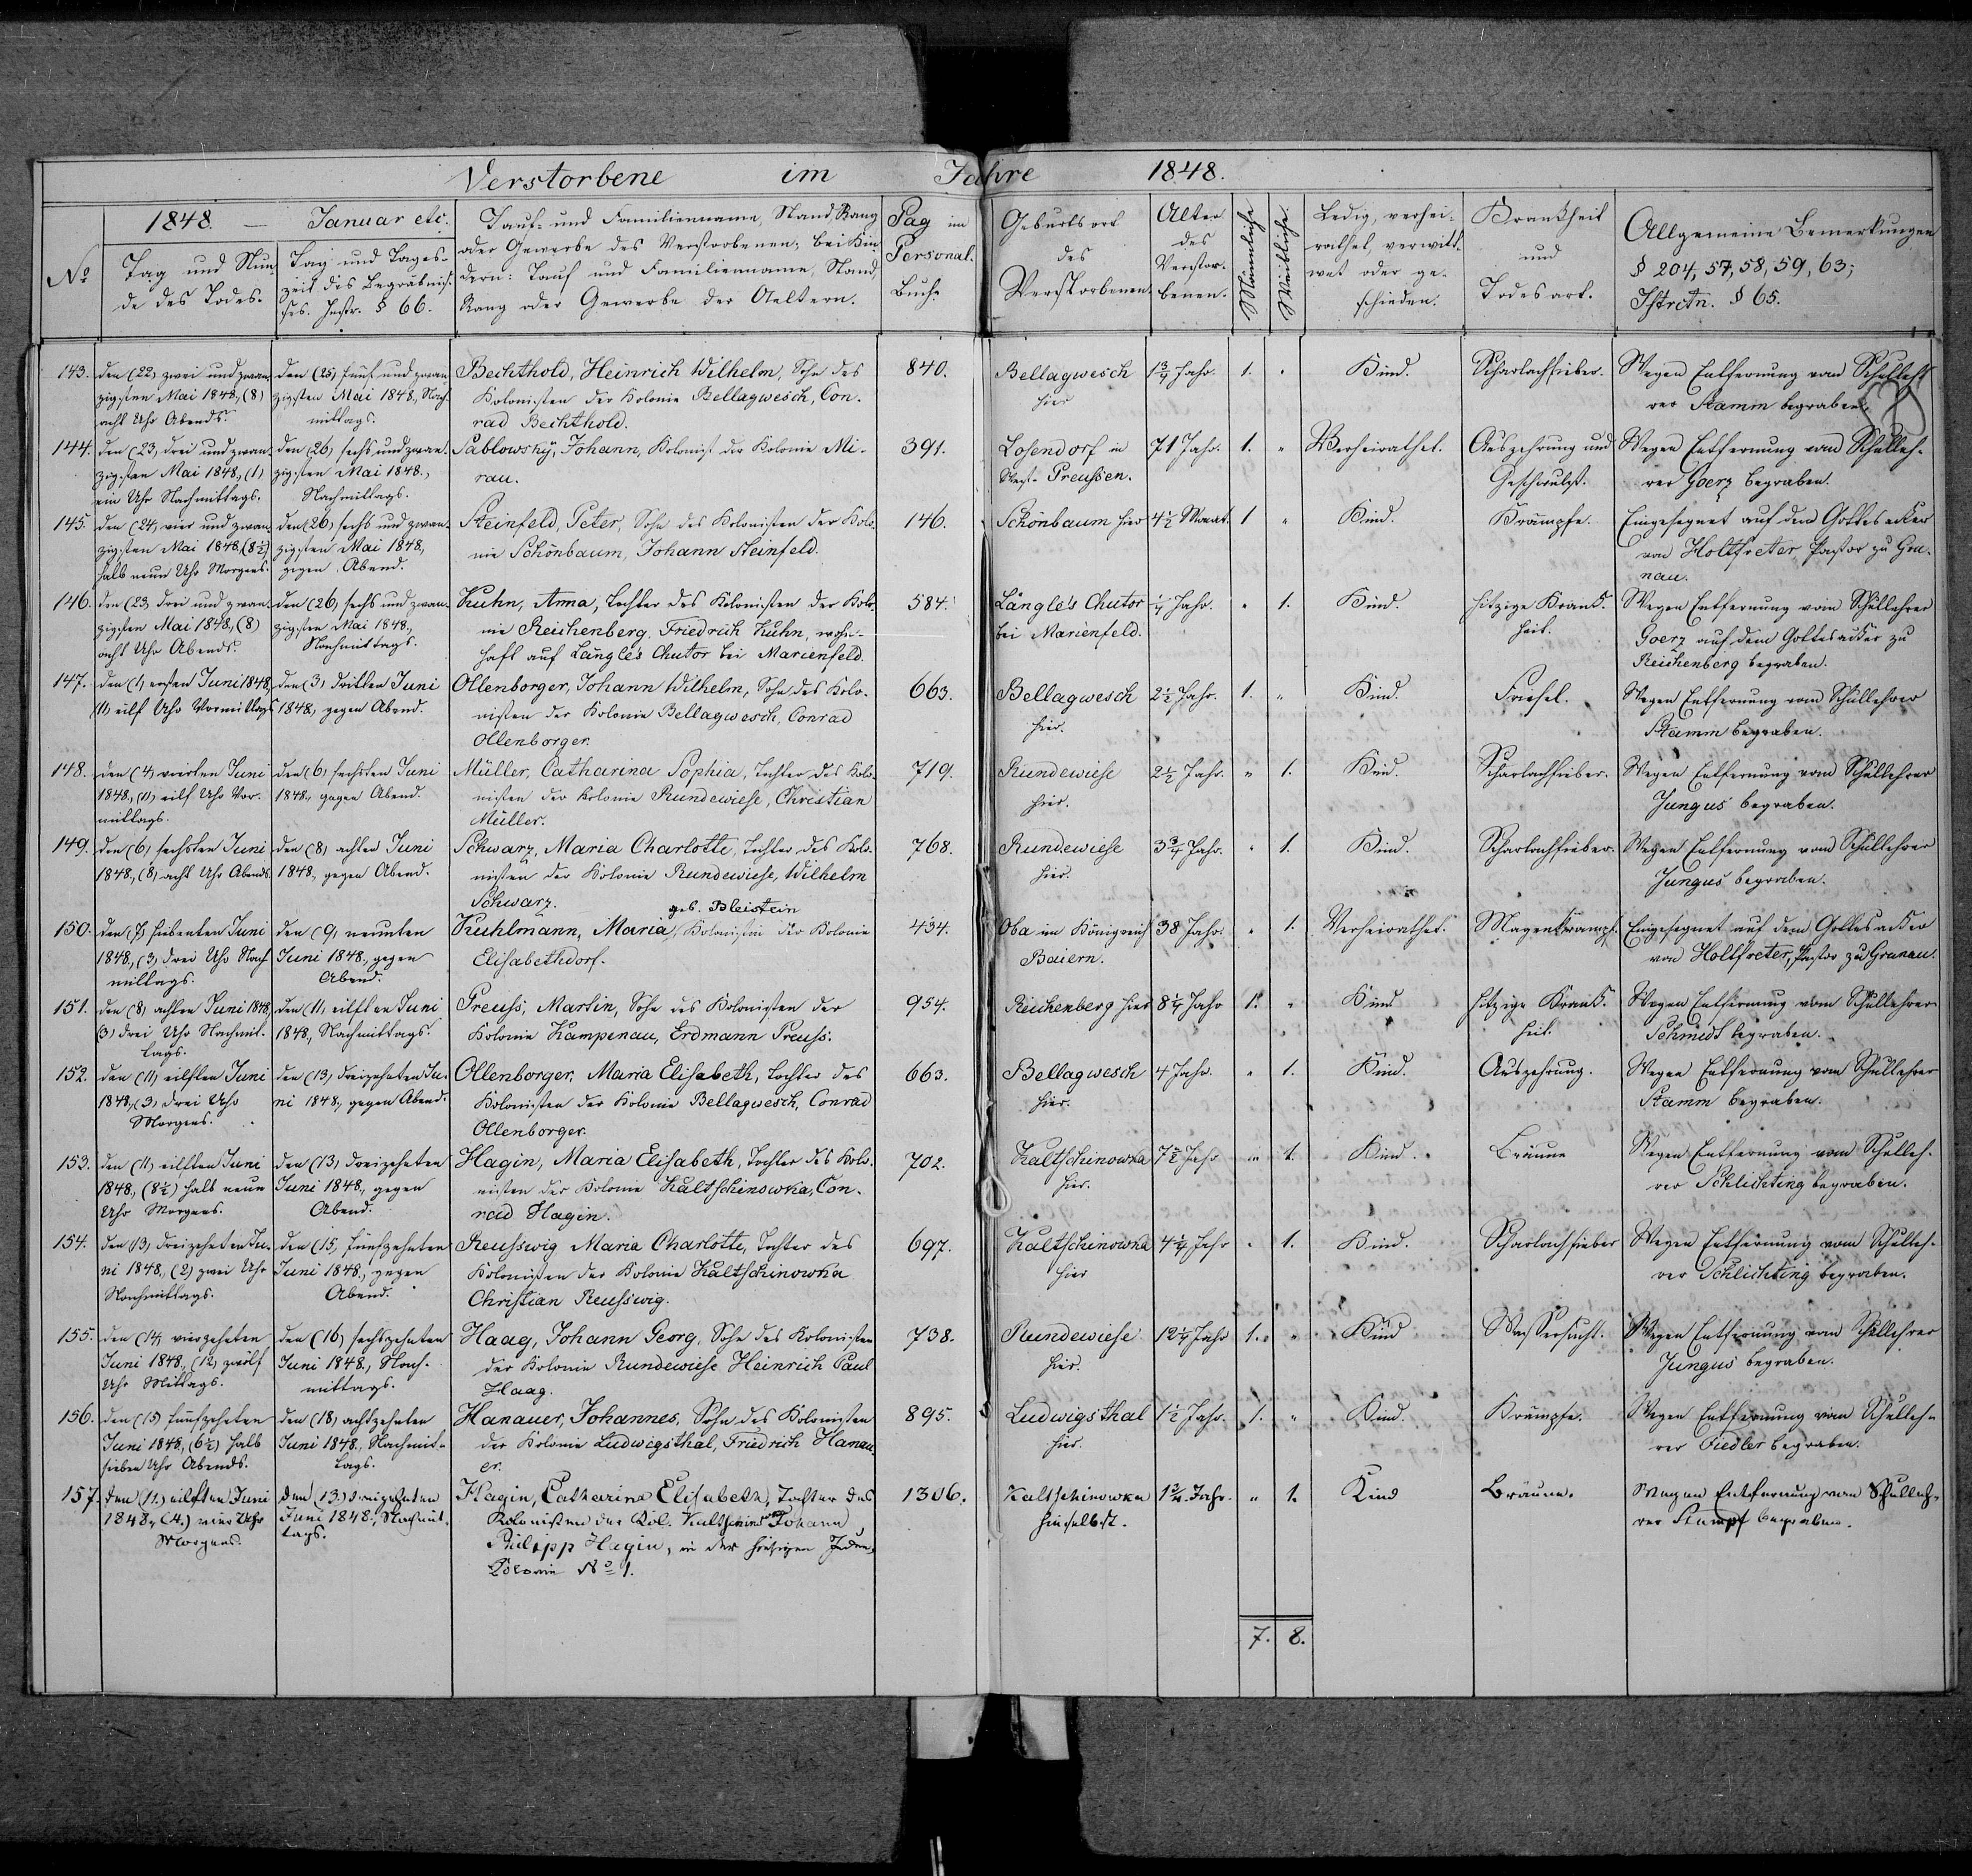 Verstorbene im Jahre 1848.
1848. — Januar etc.
No
Tag und Stun-
de des Todes.
Tag und Tages-
zeit des Begräbnis-
ses. Instr. § 66.
Tauf- und Familienname, Stand, Rang
oder Gewerbe des Verstorbenen; bei Kin-
dern: Tauf und Familienname, Stand,
Rang oder Gewerbe der Aeltern.
Pag im
Personal-
Buch.
Geburtsort
des
Verstorbenen.
Alter
des
Verstor-
benen.
Männliche
Weibliche
Ledig, verhei-
rathet, verwitt-
wet oder ge-
schieden.
Krankheit
und
Todesart.
Allgemeine Bemerkungen
§ 204, 57, 58, 59, 63;
Istrctn. § 65.
143.
den (22) zwei und zwan-
zigsten Mai 1848, (8)
acht Uhr Abends.
den (25) fünf und zwan-
zigsten Mai 1848, Nach-
mittags.
Bechthold, Heinrich Wilhelm, Sohn des
Kolonisten der Kolonie Bellagwesch, Con-
rad Bechthold.
840.
Bellagwesch
hier
1¾ Jahr.
1.
"
Kind.
Scharlachfieber.
Wegen Entfernung vom Schulleh-
rer Stamm begraben.
144.
den (23) drei und zwan-
zigsten Mai 1848, (1)
ein Uhr Nachmittags.
den (26) sechs und zwan-
zigsten Mai 1848,
Nachmittags.
Sablowsky, Johann, Kolonist der Kolonie Mi-
rau.
391.
Losendorf in
West-Preussen.
71 Jahr.
1.
"
Verheirathet.
Auszehrung und
Geschwulst.
Wegen Entfernung vom Schulleh-
rer Goerz begraben.
145.
den (24) vier und zwan-
zigsten Mai 1848, (8½)
halb neun Uhr Morgens.
den (26) sechs und zwan-
zigsten Mai 1848,
gegen Abend.
Steinfeld, Peter, Sohn des Kolonisten der Kolo-
nie Schönbaum, Johann Steinfeld.
146.
Schönbaum hier
4½ Monat.
1
"
Kind.
Krämpfe.
Eingesegnet auf dem Gottesacker
von Holtfreter, Pastor zu Gru-
nau.
146.
den (23) drei und zwan-
zigsten Mai 1848, (8)
acht Uhr Abends.
den (26) sechs und zwan-
zigsten Mai 1848,
Nachmittags.
Kuhn, Anna, Tochter des Kolonisten der Kolo-
nie Reichenberg, Friedrich Kuhn, wohn-
haft auf Längle's Chutor bei Marienfeld.
584.
Längle's Chutor
bei Marienfeld.
¼ Jahr.
"
1.
Kind.
hitzige Krank-
heit.
Wegen Entfernung vom Schullehrer
Goerz auf dem Gottesacker zu
Reichenberg begraben.
147.
den (1) ersten Juni 1848,
(11) eilf Uhr Vormittags
den (3) dritten Juni
1848, gegen Abend.
Ollenborger, Johann Wilhelm, Sohn des Kolo-
nisten der Kolonie Bellagwesch, Conrad
Ollenborger.
663.
Bellagwesch
hier.
2½ Jahr.
1.
"
Kind.
Friesel.
Wegen Entfernung vom Schullehrer
Stamm begraben.
148.
den (4) vierten Juni
1848, (11) eilf Uhr Vor-
mittags.
den (6) sechsten Juni
1848, gegen Abend.
Müller, Catharina Sophia, Tochter des Kolo-
nisten der Kolonie Rundewiese, Christian
Müller.
719.
Rundewiese
hier.
2½ Jahr.
"
1.
Kind.
Scharlachfieber.
Wegen Entfernung vom Schullehrer
Jungus begraben.
149.
den (6) sechsten Juni
1848, (8) acht Uhr Abends
den (8) achten Juni
1848, gegen Abend.
Schwarz, Maria Charlotte, Tochter des Kolo-
nisten der Kolonie Rundewiese, Wilhelm
Schwarz.
768.
Rundewiese
hier.
3¾ Jahr.
"
1.
Kind.
Scharlachfieber.
Wegen Entfernung vom Schullehrer
Jungus begraben.
150.
den (7) siebenten Juni
1848, (3) drei Uhr Nach-
mittags.
den (9) neunten
Juni 1848, gegen
Abend.
geb. Bleistein
Kuhlmann, Maria, Kolonistin der Kolonie
Elisabethdorf.
434.
Oba im Königreich
Baiern.
38 Jahr.
"
1.
Verheirathet.
Magenkrampf.
Eingesegnet auf dem Gottesacker
von Holtfreter, Pastor zu Grunau.
151.
den (8) achten Juni 1848,
(3) drei Uhr Nachmit-
tags.
den (11) eilften Juni
1848, Nachmittags.
Preuss, Martin, Sohn des Kolonisten der
Kolonie Kampenau, Erdmann Preuss.
954.
Reichenberg hier
8¼ Jahr
1.
"
Kind
hitzige Krank-
heit.
Wegen Entfernung vom Schullehrer
Schmidt begraben.
152.
den (11) eilften Juni
1848, (3) drei Uhr
Morgens.
den (13) dreizehnten Ju-
ni 1848, gegen Abend.
Ollenborger, Maria Elisabeth, Tochter des
Kolonisten der Kolonie Bellagwesch, Conrad
Ollenborger.
663.
Bellagwesch
hier.
4 Jahr.
"
1.
Kind.
Auszehrung.
Wegen Entfernung vom Schullehrer
Stamm begraben.
153.
den (11) eilften Juni
1848, (8½) halb neun
Uhr Morgens.
den (13) dreizehnten
Juni 1848, gegen
Abend.
Hagin, Maria Elisabeth, Tochter des Kolo-
nisten der Kolonie Kaltschinowka, Con-
rad Hagin.
702.
Kaltschinowka
hier.
7½ Jahr
"
1.
Kind.
Bräune
Wegen Entfernung vom Schulleh-
rer Schlichting begraben.
154.
den (13) dreizehnten Ju-
ni 1848, (2) zwei Uhr
Nachmittags.
den (15) fünfzehnten
Juni 1848, gegen
Abend.
Reusswig Maria Charlotte, Tochter des
Kolonisten der Kolonie Kaltschinowka
Christian Reusswig.
697.
Kaltschinowka
hier
4¼ Jahr
"
1.
Kind.
Scharlachfieber
Wegen Entfernung vom Schulleh-
rer Schlichting begraben.
155.
den (14) vierzehnten
Juni 1848, (12) zwölf
Uhr Mittags.
den (16) sechszehnten
Juni 1848, Nach-
mittags.
Haag, Johann Georg, Sohn des Kolonisten
der Kolonie Rundewiese Heinrich Paul
Haag.
738.
Rundewiese
hier.
12¼ Jahr
1.
"
Kind
Wassersucht.
Wegen Entfernung vom Schullehrer
Jungus begraben.
156.
den (15) fünfzehnten
Juni 1848, (6½) halb
sieben Uhr Abends.
den (18) achtzehnten
Juni 1848, Nachmit-
tags.
Hanauer, Johannes, Sohn des Kolonisten
der Kolonie Ludwigsthal, Friedrich Hanau-
er.
895.
Ludwigsthal
hier.
1½ Jahr.
1.
"
Kind.
Krämpfe.
Wegen Entfernung vom Schulleh-
rer Fiedler begraben.
157.
den (11.) eilften Juni
1848, (4.) vier Uhr
Morgens.
den (13.) dreizehnten
Juni 1848, Nachmit-
tags.
Hagin, Catharina Elisabeth, Tochter des
Kolonisten der Kol. Kaltschinowka Johann
Philipp Hagin, in der hiesigen Juden-
Kolonie No 1.
1306.
Kaltschinowka
hieselbst.
1¾ Jahr.
"
1.
Kind
Bräune.
Wegen Entfernung vom Schulleh-
rer Stumpf begraben.
7.
8.